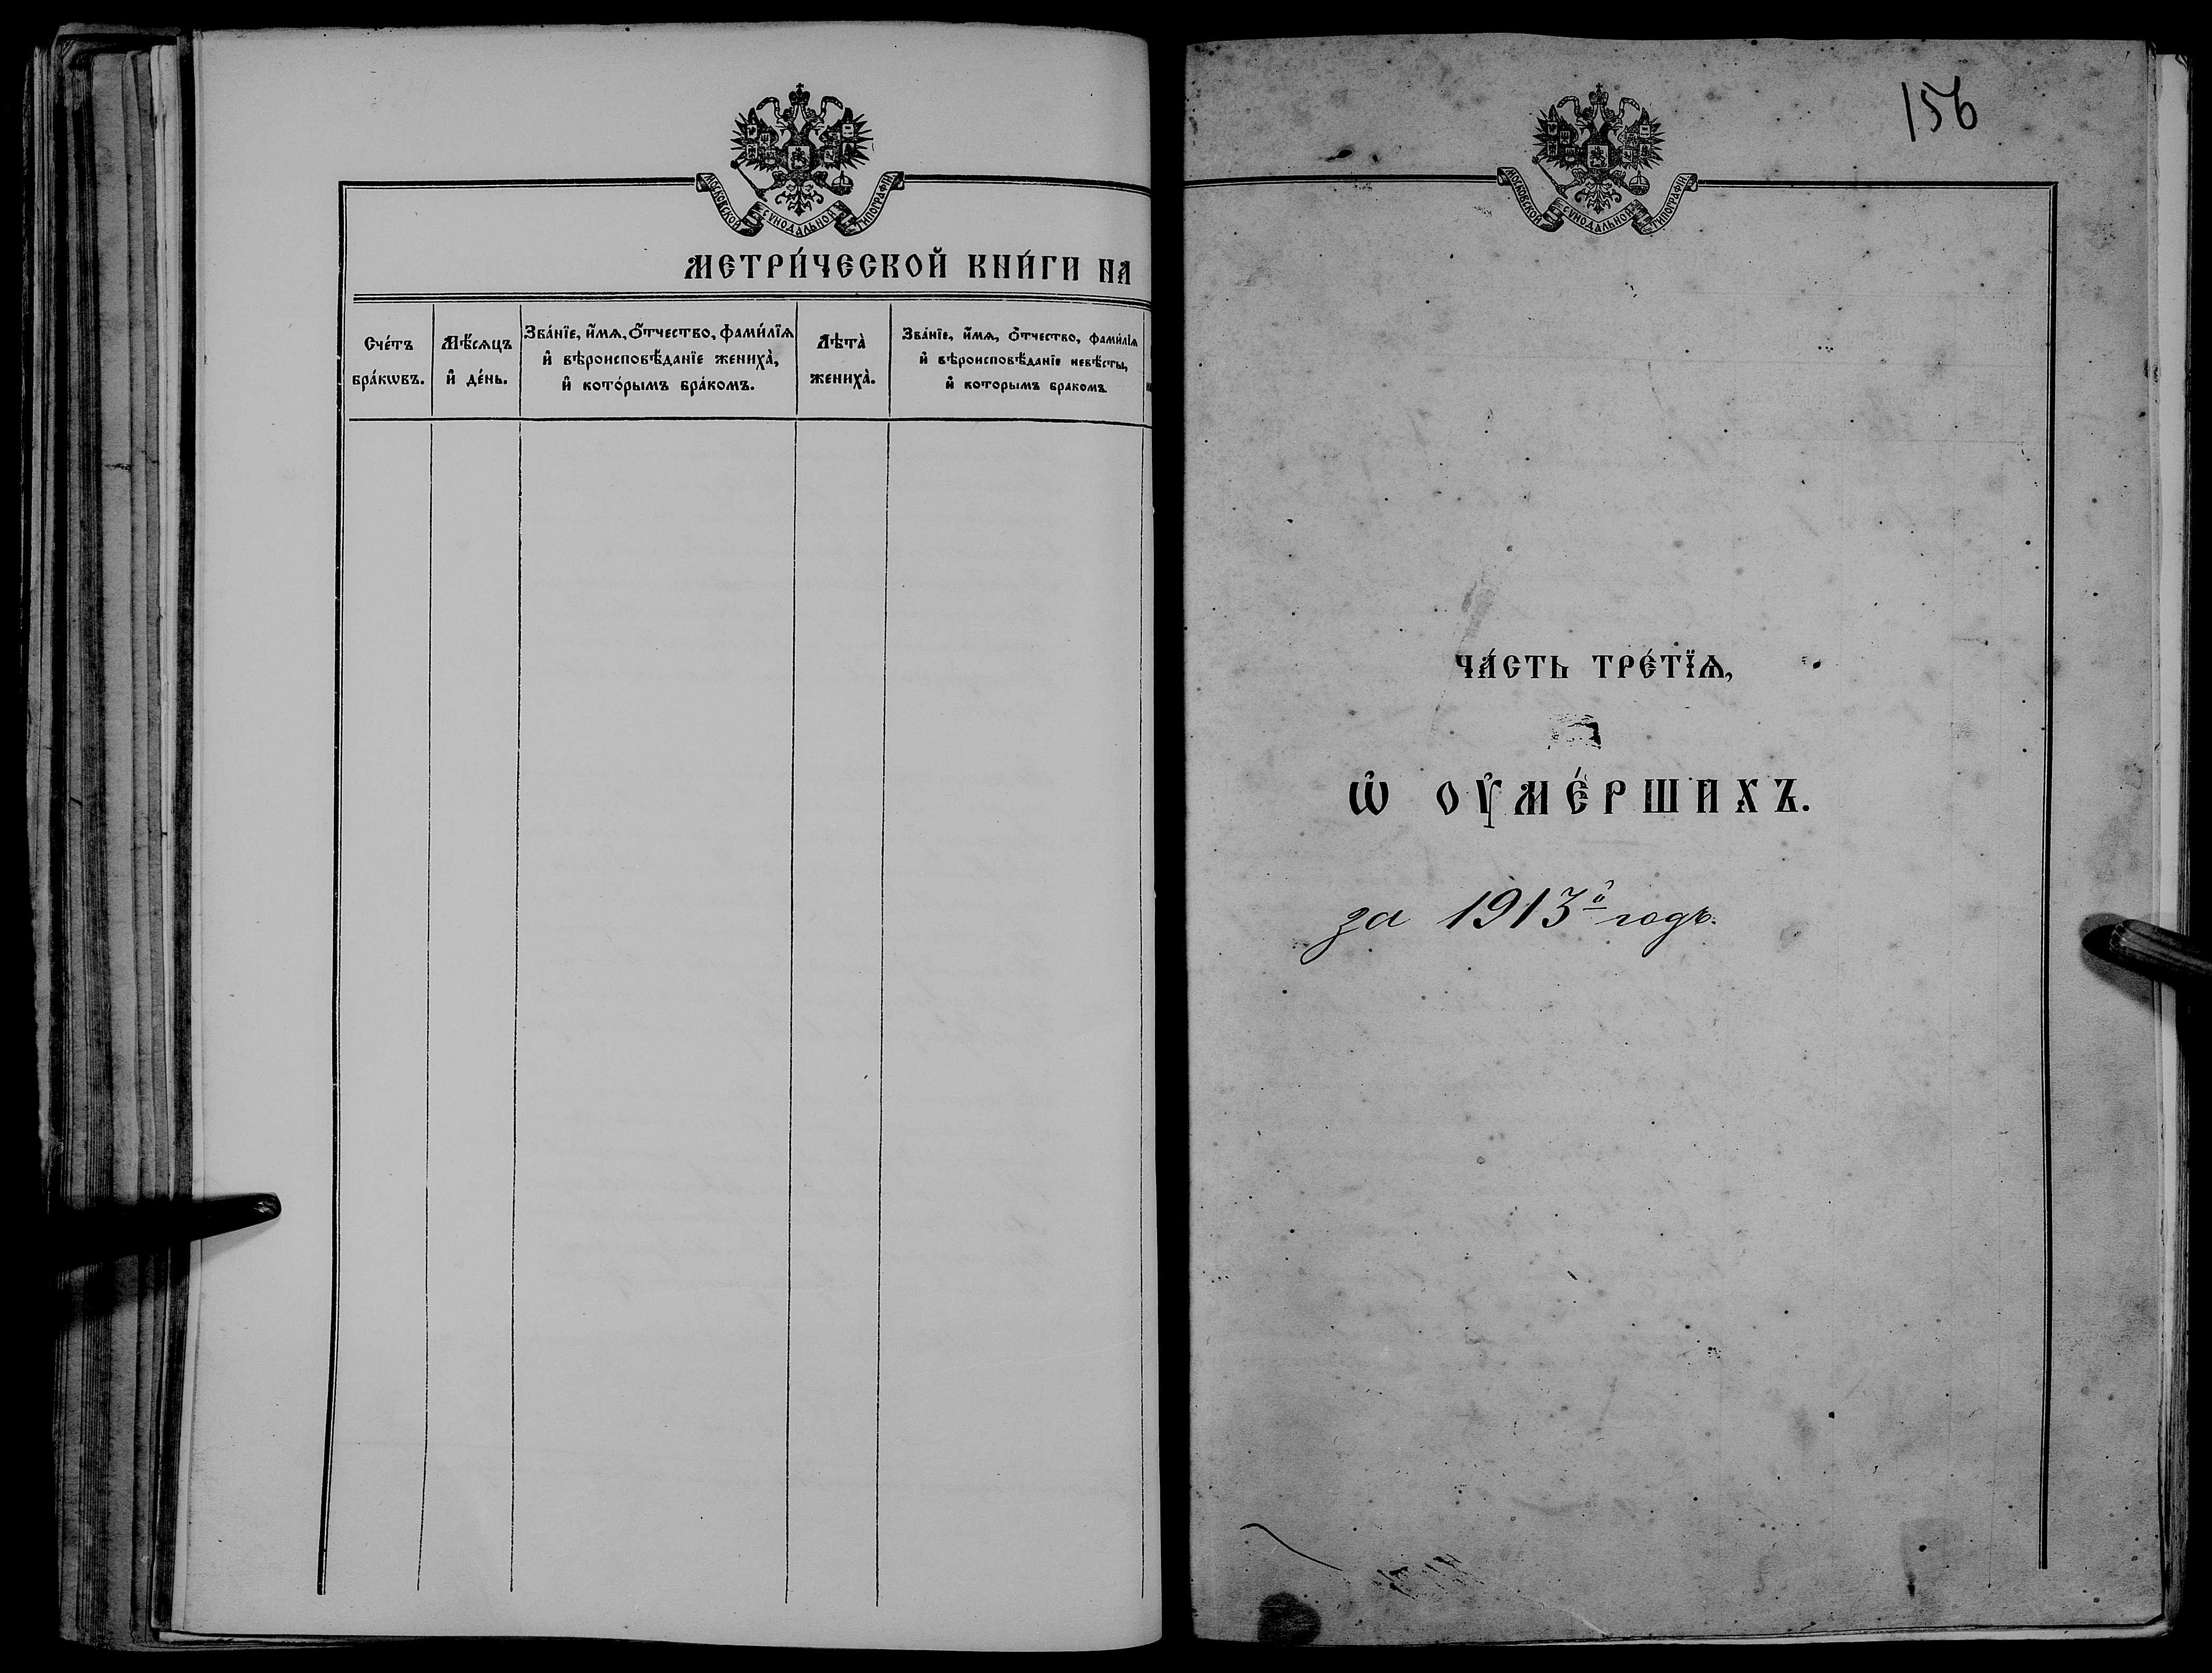 МОСКОВСКОЙ СѴНОДАЛЬНОЙ ТИПОГРАФІИ
МЕТРИ́ЧЕСКОЙ КНИ́ГИ НА
Сче́тъ
бра́кѡвъ.
Мѣ́сѧцъ
и҆ де́нь.
Зва́нїе, и҆́мѧ, ѻ҆́тчество, фами́лїѧ
и҆ вѣроисповѣ́данїе жениха̀,
и҆ кото́рымъ бра́комъ.
Лѣта̀
жениха̀.
Зва́нїе, и҆́мѧ, ѻ҆́тчество, фами́лїѧ
и҆ вѣроисповѣ́данїе невѣ́сты,
и҆ которымъ бракомъ
156
МОСКОВСКОЙ СѴНОДАЛЬНОЙ ТИПОГРАФІИ
ЧА́СТЬ ТРЕ́ТЇѦ,
Ѡ҆ ОУ҆МЕ́РШИХЪ.
за 1913й годъ.